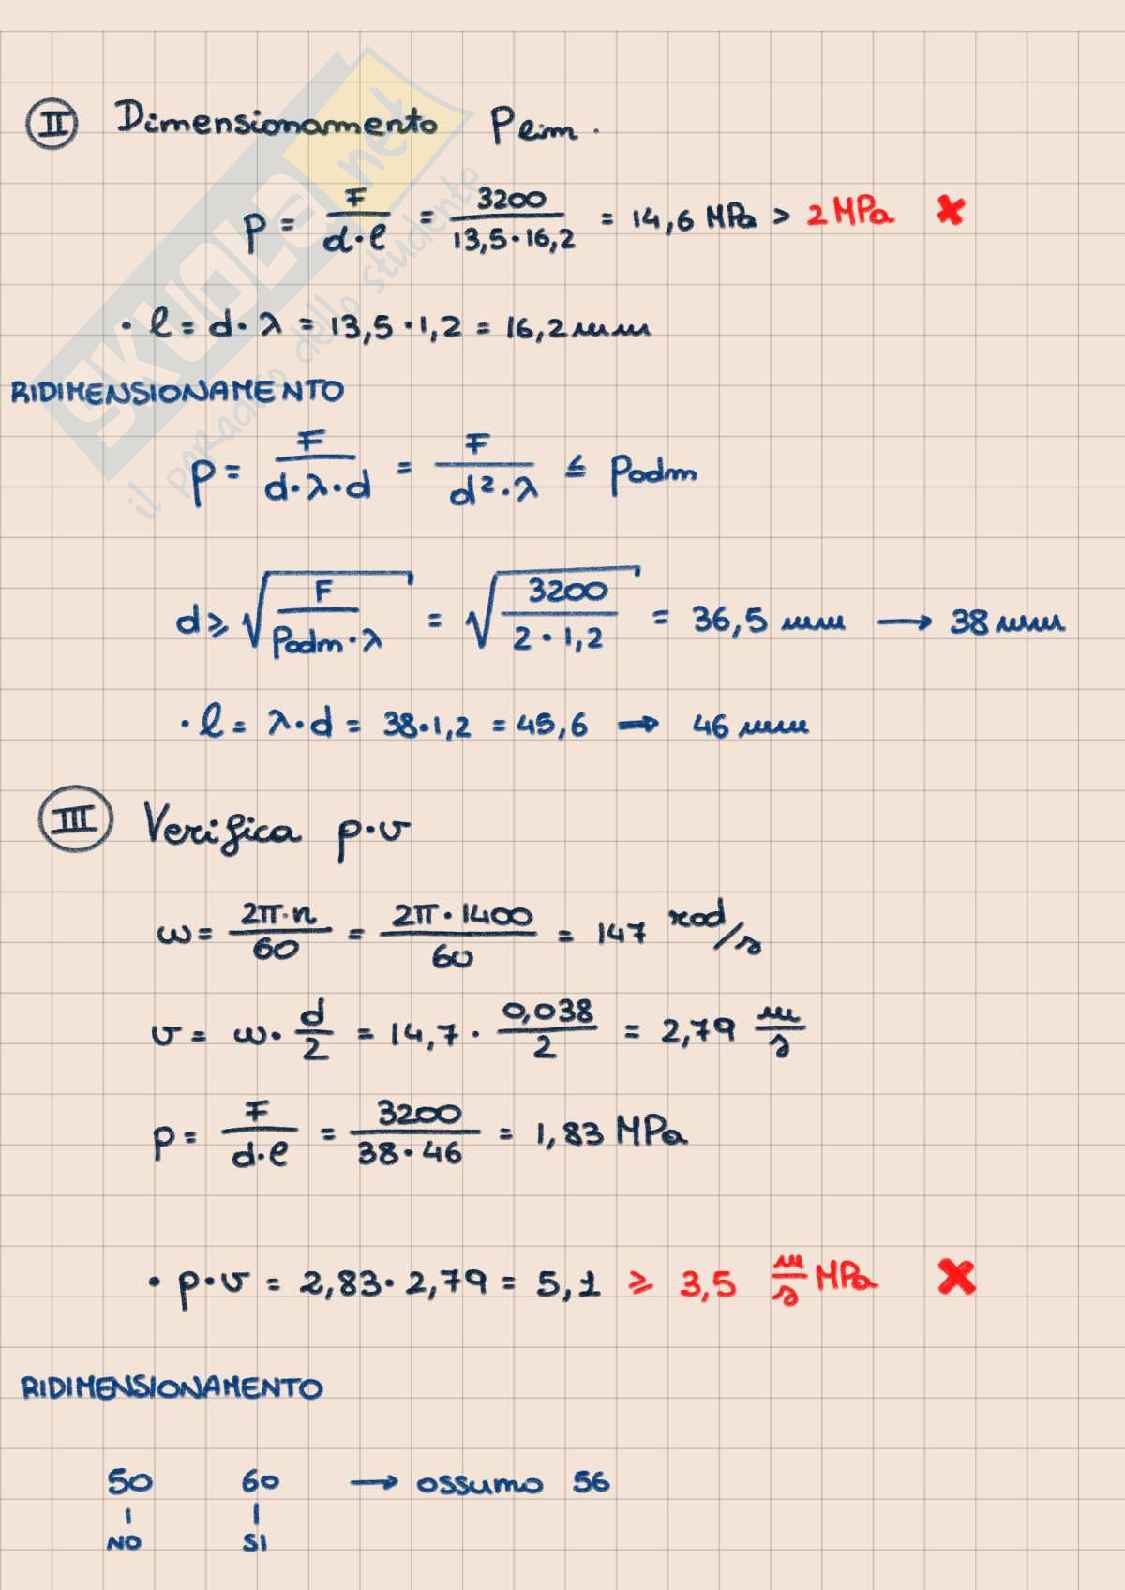 II Dimensionamento Plim.
p = F / d·l = 3200 / 13,5·16,2 = 14,6 MPa > 2 MPa ✗
· l = d·λ = 13,5·1,2 = 16,2 mm
RIDIMENSIONAMENTO
p = F / d·λ·d = F / d²·λ ≤ Padm
d ≥ √(F / Padm·λ) = √(3200 / 2·1,2) = 36,5 mm → 38 mm
· l = λ·d = 38·1,2 = 45,6 → 46 mm
III Verifica p·v
ω = 2π·n / 60 = 2π·1400 / 60 = 147 rad/s
v = ω·d/2 = 14,7·0,038 / 2 = 2,79 m/s
p = F / d·l = 3200 / 38·46 = 1,83 MPa
· p·v = 2,83·2,79 = 5,1 ≥ 3,5 m/s MPa ✗
RIDIMENSIONAMENTO
50 60 → assumo 56
NO SI
SKUOLA.net
il paradiso dello studente